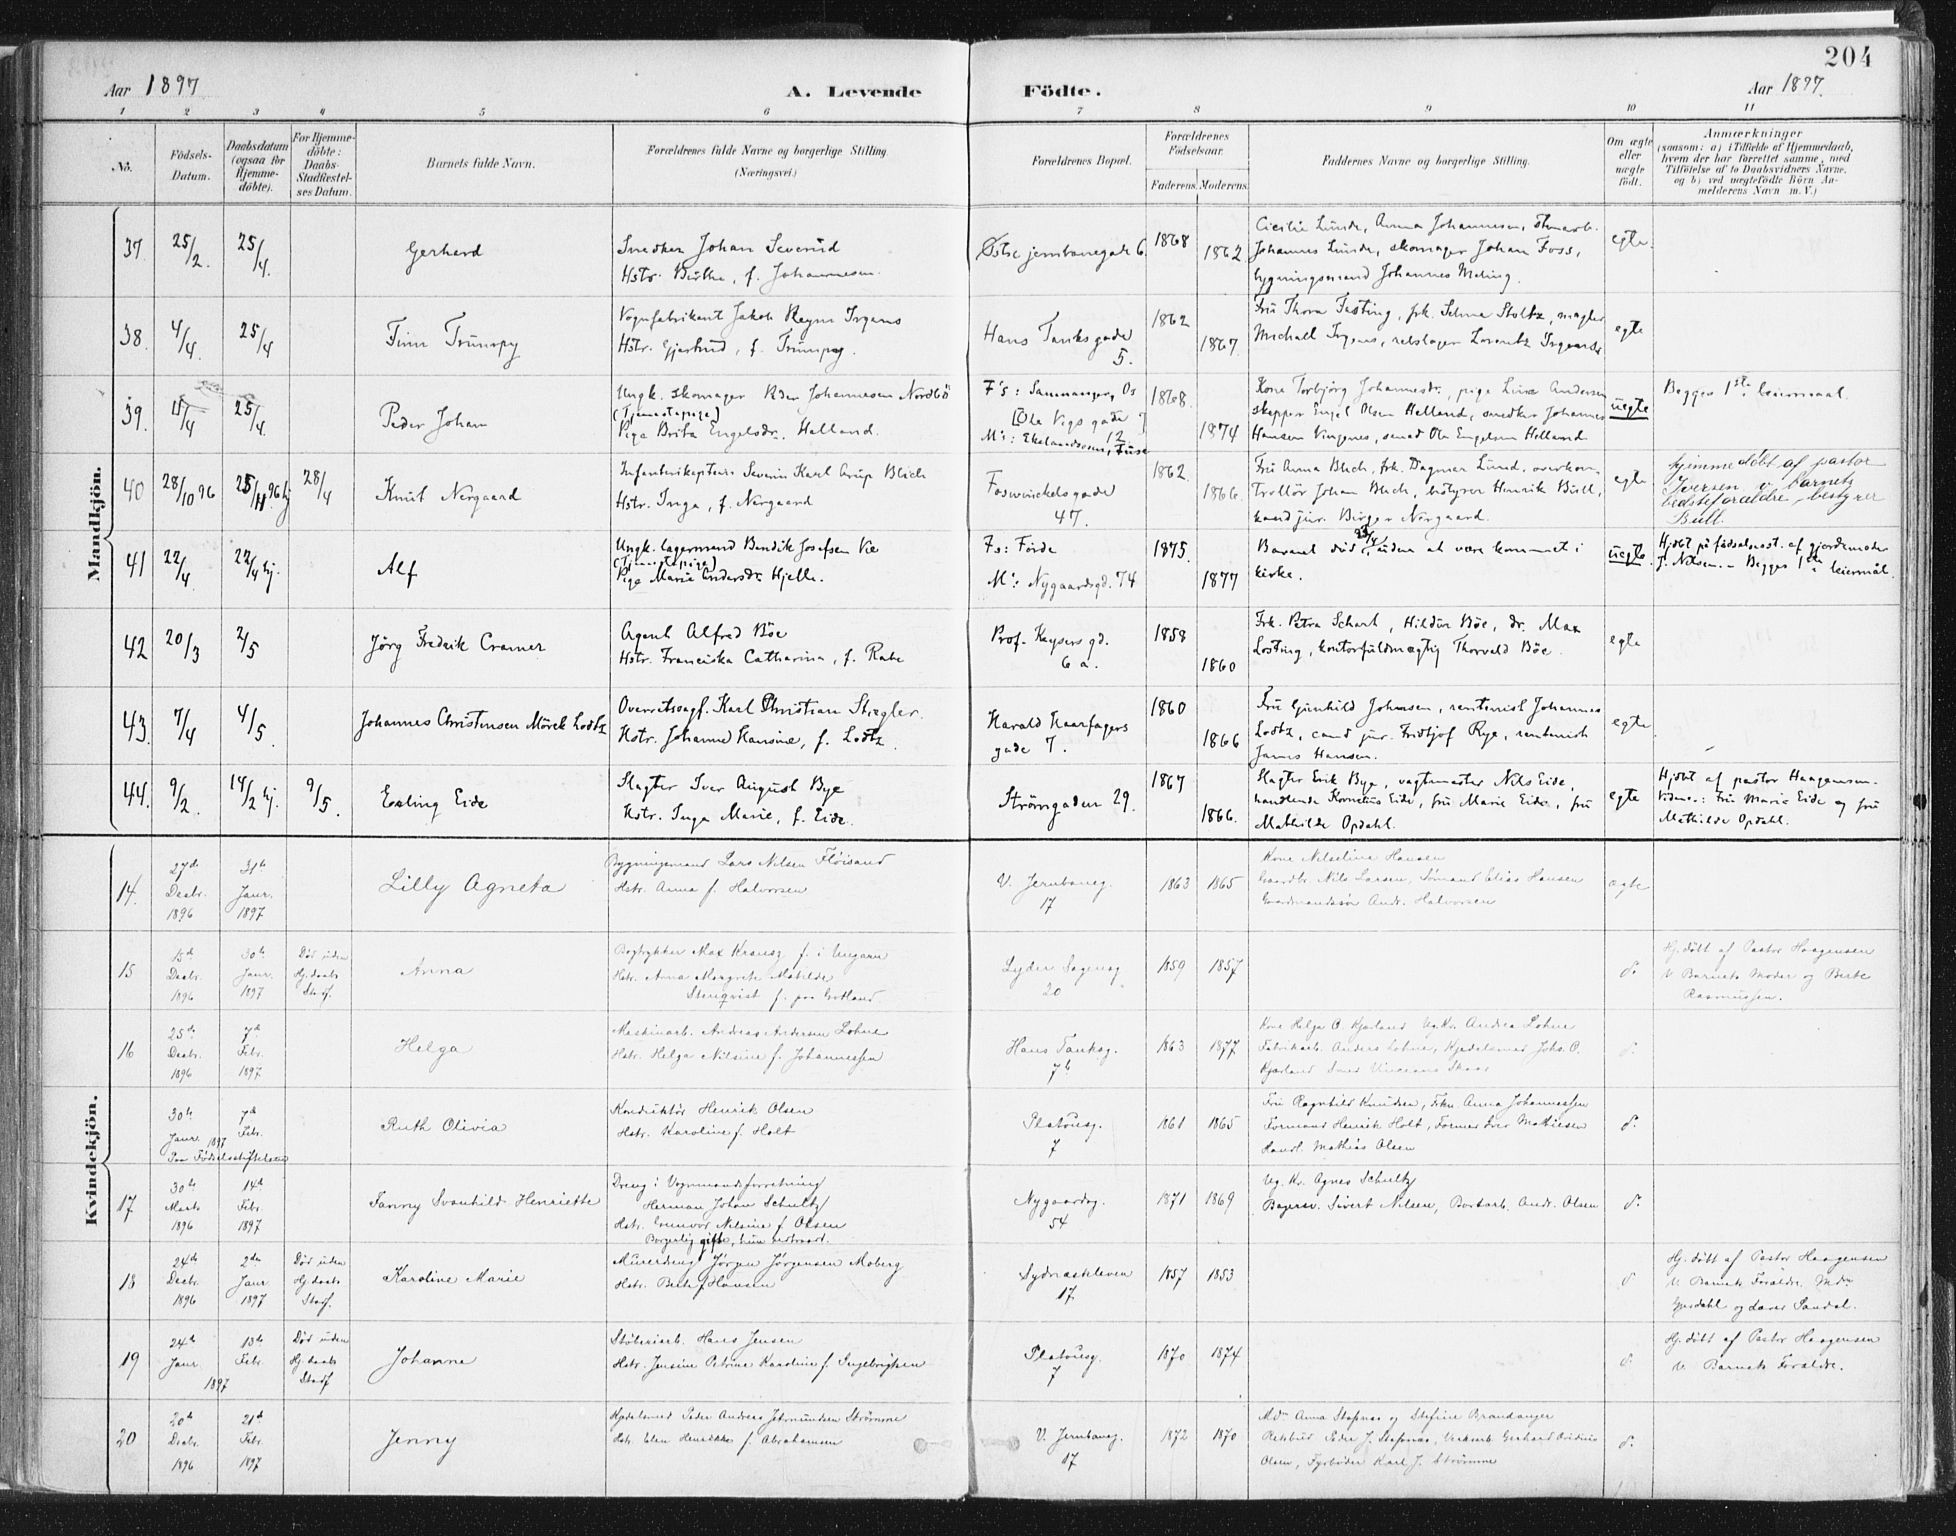 204
Aar 1897
A. Levende Födte.
Aar 1897.
1 2 3 4 5 6 7 8 9 10 11
No.
Födsels-
Datum.
Daabsdatum
(ogsaa for
Hjemme-
döbte).
For Hjemme-
döbte:
Daabs-
Stadfæstel-
ses Datum.
Barnets fulde Navn.
Forældrenes fulde Navne og borgerlige Stilling.
(Næringsvei.)
Forældrenes Bopæl.
Forældrenes
Födselsaar.
Faderens. Moderens.
Faddernes Navne og borgerlige Stilling.
Om ægte
eller
uægte
födt.
Anmærkninger
(saasom: a) i Tilfælde af Hjemmedaab,
hvem der har forrettet samme, med
Tilföielse af to Daabsvidners Navne,
og b) ved uægtefödte Börn An-
melderens Navn m. V.)
Mandkjön.
37. 25/2. 25/4. Gerhard
Snedker Johan Severud
Hstr. Birthe, f. Johannesen.
Østre jernbanegade 6.
1868 1862
Cicilie Lunde, Anna Johannesen,
Johannes Lunde, skomager Johan Foss,
bygningsmand Johannes Meling.
egte.
38. 4/4. 25/4 Finn Trumpy
Vognfabrikant Jakob Irgens
Hstr. Gjertrud, f. Trumpy.
Hans Tanksgade
5.
1862 1867.
Fru Thora Fasting, frk. Selma Stoltz, mægler
Michael Irgens, rebslager Lorentz Irgens
egte
39. 11/4 25/4. Peder Johan
Ungk. skomager Peder Johannesen Nordbö
(Tjenestepige)
Pige Brita Engelsdr. Helland.
F's: Samnanger, Os
[Ole Vigs gade
12]
M's: Ekelandsosen, Fuse
1868. 1874
Kone Torbjörg Johannesdr., pige Lina Andersen
skipper Engel Olsen Helland, smedker Johannes
Hansen Vingenes, Ole Engelsen Helland
uegte
Begges 1ste leiermaal.
40 28/10 96 25/11 96 hj 28/4 Knut Nergaard
Infanterikaptein Severin Karl Arup Blich
Hstr. Inga, f. Nergaard
Foswinckelsgade
47.
1862. 1866.
Fru Anna Blich, frk. Dagmar Lund, overkon-
trollör Johan Blich, bestyrer Henrik Bull,
kand jur. Birger Nergaard.
egte
hjemmedöbt af pastor
Iversen v. barnets
bedsteforældre, bestyrer
Bull.
41 22/4 22/4 hj. Alf
Ungk. lagermand Bendik Josefsen Vie
(Tjenestepige)
Pige Marie Andersdr. Hjelle.
F's: Förde
M's: Nygaardsgd. 74
1875. 1877
Barnet död 23/4 uden at være kommet i
kirke.
uegte.
Hjdbt på födselsanst. af gjordemoder
J. Nilsen. – Begges 1ste leiermål.
42 20/3 2/5 Jörg Fredrik Cramer
Agent Alfred Böe
Hstr. Franciska Catharina, f. Rabe
Prof. Keysers gd.
6 a.
1858 1860
Frk. Petra Schart, Hildur Böe, dr. Max
Losting, kontorfuldmægtig Thorvald Böe.
egte
43. 7/4 4/5. Johannes Christensen Mörck Lodtz
Overretssagf. Karl Christian Stægler.
Hstr. Johanne Hansine, f. Lodtz.
Harald Haarfagers
gade 7.
1860 1866
Fru Gunhild Johnsen, rentenist Johannes
Lodtz, cand jur. Fridtjof Rye, rentenist
James Hansen.
egte
44. 9/2. 14/2 hj. 9/5. Erling Eide
Slagter Iver August Bye
Hstr. Inga Marie, f. Eide.
Strömgaden 29.
1867 1866.
Slagter Erik Bye, vagtmester Nils Eide,
handlende Kornelius Eide, fru Marie Eide, fru
Mathilde Opdahl.
egte
Hjdbt af pastor Haagensen.
Vidner: fru Marie Eide og fru
Mathilde Opdahl.
Kvindekjön.
14. 27de Decbr. 1896 31te Janr. 1897 Lilly Agneta
Bygningsmand Lars Nilsen Flöisand
Hstr. Anna f. Halvorsen
V. Jernbaneg.
17
1863 1865
Kone Nilseline Hansen
Gaardbr. Nils Larsen, Sömand Elias Hansen
Gaardmandssön Andr. Halvorsen
ægte
15 15de Decbr. 1896 30te Janr. 1897 Död uden Hj.daabs Stadf. Anna
Bogtrykker Max Krausz f. i Ungarn
Hstr. Anna Margrete Matilde
Stenqvist f. paa Gotland
Lyder Sagensg
20
1859 1857
d.
Hj. döbt af Pastor Haagensen
V. Barnets Moder og Berte
Rasmussen.
16 25de Decbr. 1896 7de Febr. 1897. Helga
Maskinarb. Andreas Andersen Lohne
Hstr. Helga Nilsine f. Johannessen
Hans Tanksg.
7b
1863 1877
Kone Helga O. Kjærland Ug.Kv. Andrea Lohne
Fabrikarb. Anders Lohne, Kjedelsmed Johs. O.
Kjærland Smed Vincens Skaar
d.
30te Janr. 1897 7de Febr. Ruth Olivia
Paa Födselsstiftelsen
Konduktör Henrik Olsen
Hstr. Karoline f. Holt
Platousg.
7
1861 1865
Fru Ragnhild Knudsen, Frkn. Anna Johannessen
Formand Henrik Holt, Former Iver Mathiesen
Handl. Mathias Olsen
d.
17 30te Marts 1896 14de Febr. 1897 Fanny Svanhild Henriette
Dreng i Vognmandsforretning
Herman Johan Schultz
Hstr. Gunvor Nilsine f Olsen
Borgerlig gifte,
Nygaardsg.
54
1871 1869
Ug. Kv. Agnes Schultz
Bagersv. Sivert Nilsen, Andr. Olsen
d.
18 24de Decbr. 1896 2den Janr 1897 Död uden Hj daabs Stadf. Karoline Marie
Murerdreng Jörgen Jörgensen Moberg
Hstr. Berte f Hansen
Sydneskleven
17
1857 1853
d
Hj. döbt af Pastor Haagensen
V. Barnets Foraldre, Mdm
og Lars Sandal.
19 24de Janr 1897 13de Febr. Död uden Hj daabs Stadf Johanne
Stöberiarb. Hans Jensen
Hstr. Jensine Petrine Karoline f. Ingebrigtsen
Platousg.
7
1870 1874
d.
Hj. döbt af Pastor Haagensen
V. Barnets Foraldre.
20 20de Decbr. 1896 21de Febr. 1897 Jenny
Kjedelsmed Peder Andreas Strömme
Hstr. Elen Henrikke f. Abrahamsen
V. Jernbaneg.
17
1872 1870
Mdm Anna Stafsnes og Stefine Brandanger
Peder J. Stafsnes, Gerhard
Olsen, Fyrböder Karl J. Strömme
d.